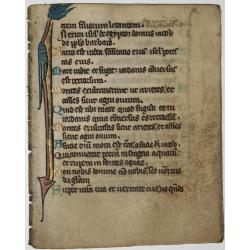 trem filiorum letantem
In exitu isrl de egypto domus iacob
de pplo barbaro
facta est iudea sctificatio eius isrl potes
tas eius
Mare uidit et fugit iordanis conuersus
est retrorsum
Montes exultauerunt ut arietes et
colles sicut agni ouium
Quid est tibi mare quod fugisti et tu
iordanis quia conuersus es retrorsum
Montes exultastis sicut arietes et
colles sicut agni ouium
A facie dni mota est terra a facie dei iacob
Qui conuertit petram in stagna aquarum
et rupem in fontes aquarum
Non nobis domine non nobis sed nomini
tuo da gloriam
Super mia tua et ueritate tua ne quando